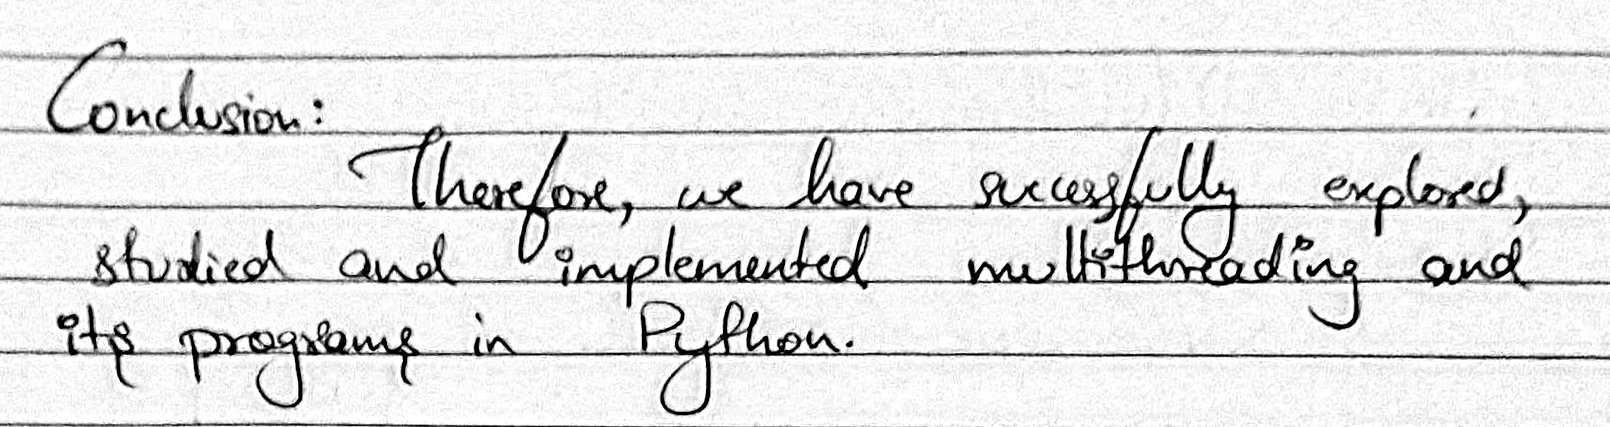 Conclusion:
Therefore, we have successfully explored,
studied and implemented multithreading and
its programs in Python.